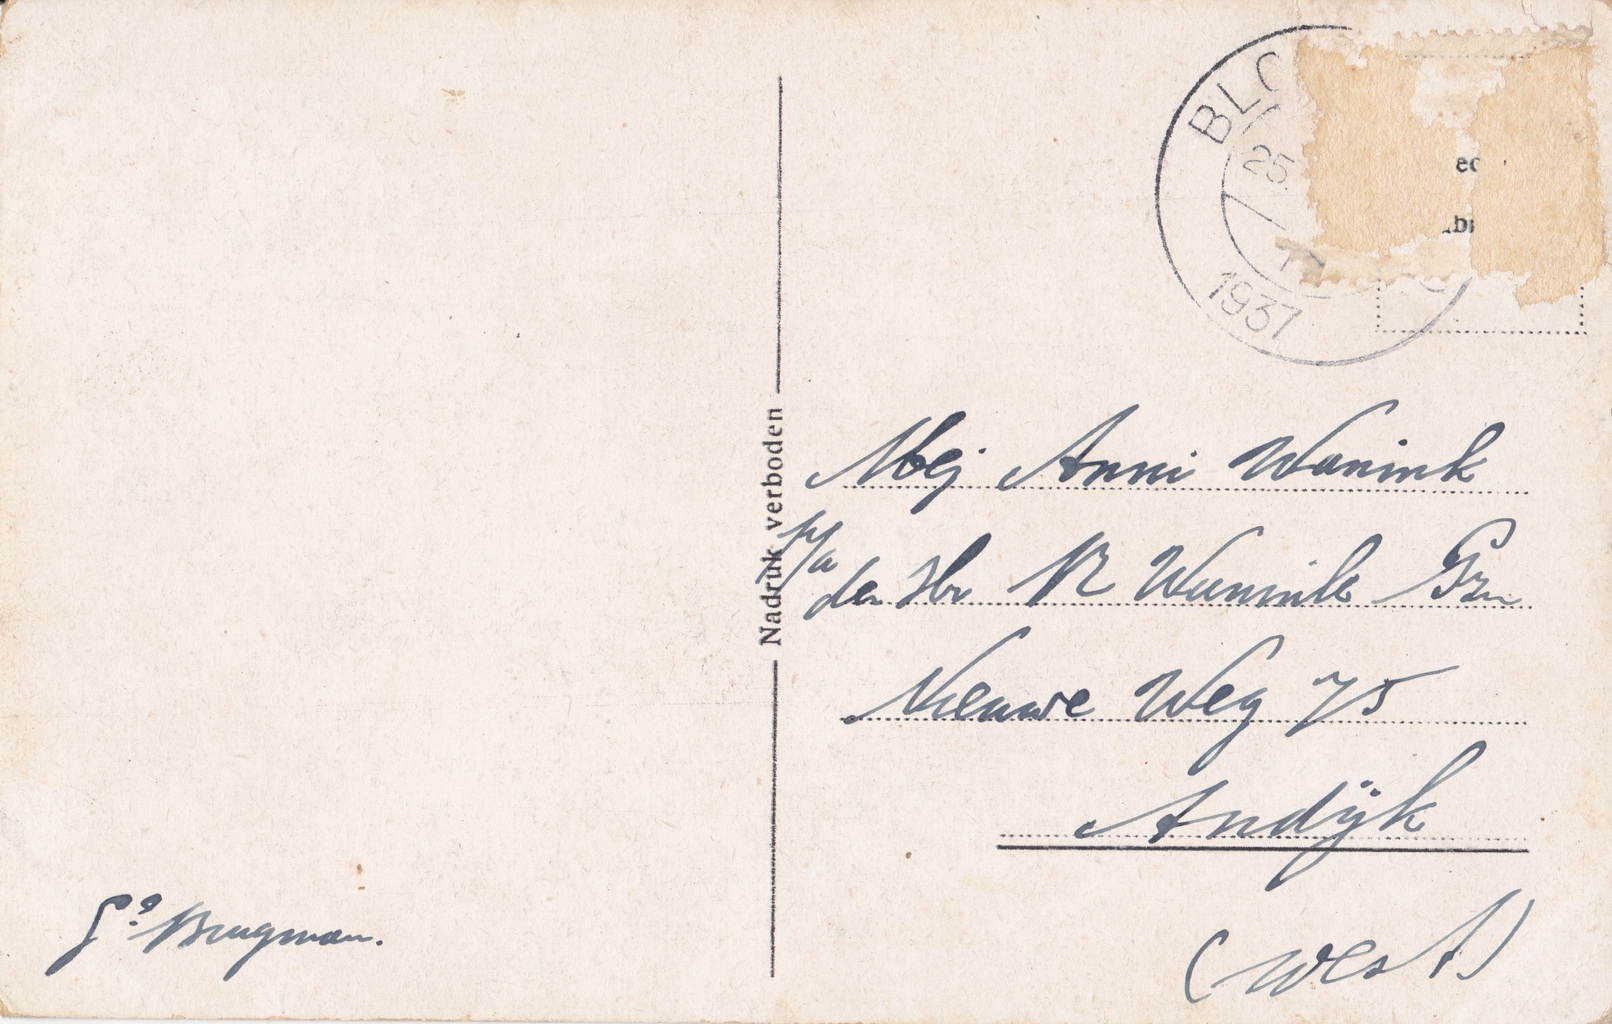 BLO
25.
1937
Nadruk verboden
Mej Anni Wanink
p/a
den Hr R Wanink Gzn
Nieuwe Weg 75
Andijk
(West)
Brugman.